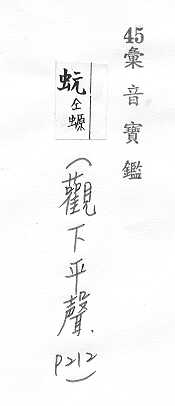 45彙音寶鑑
蚖仝螈
(觀下平聲.P212)